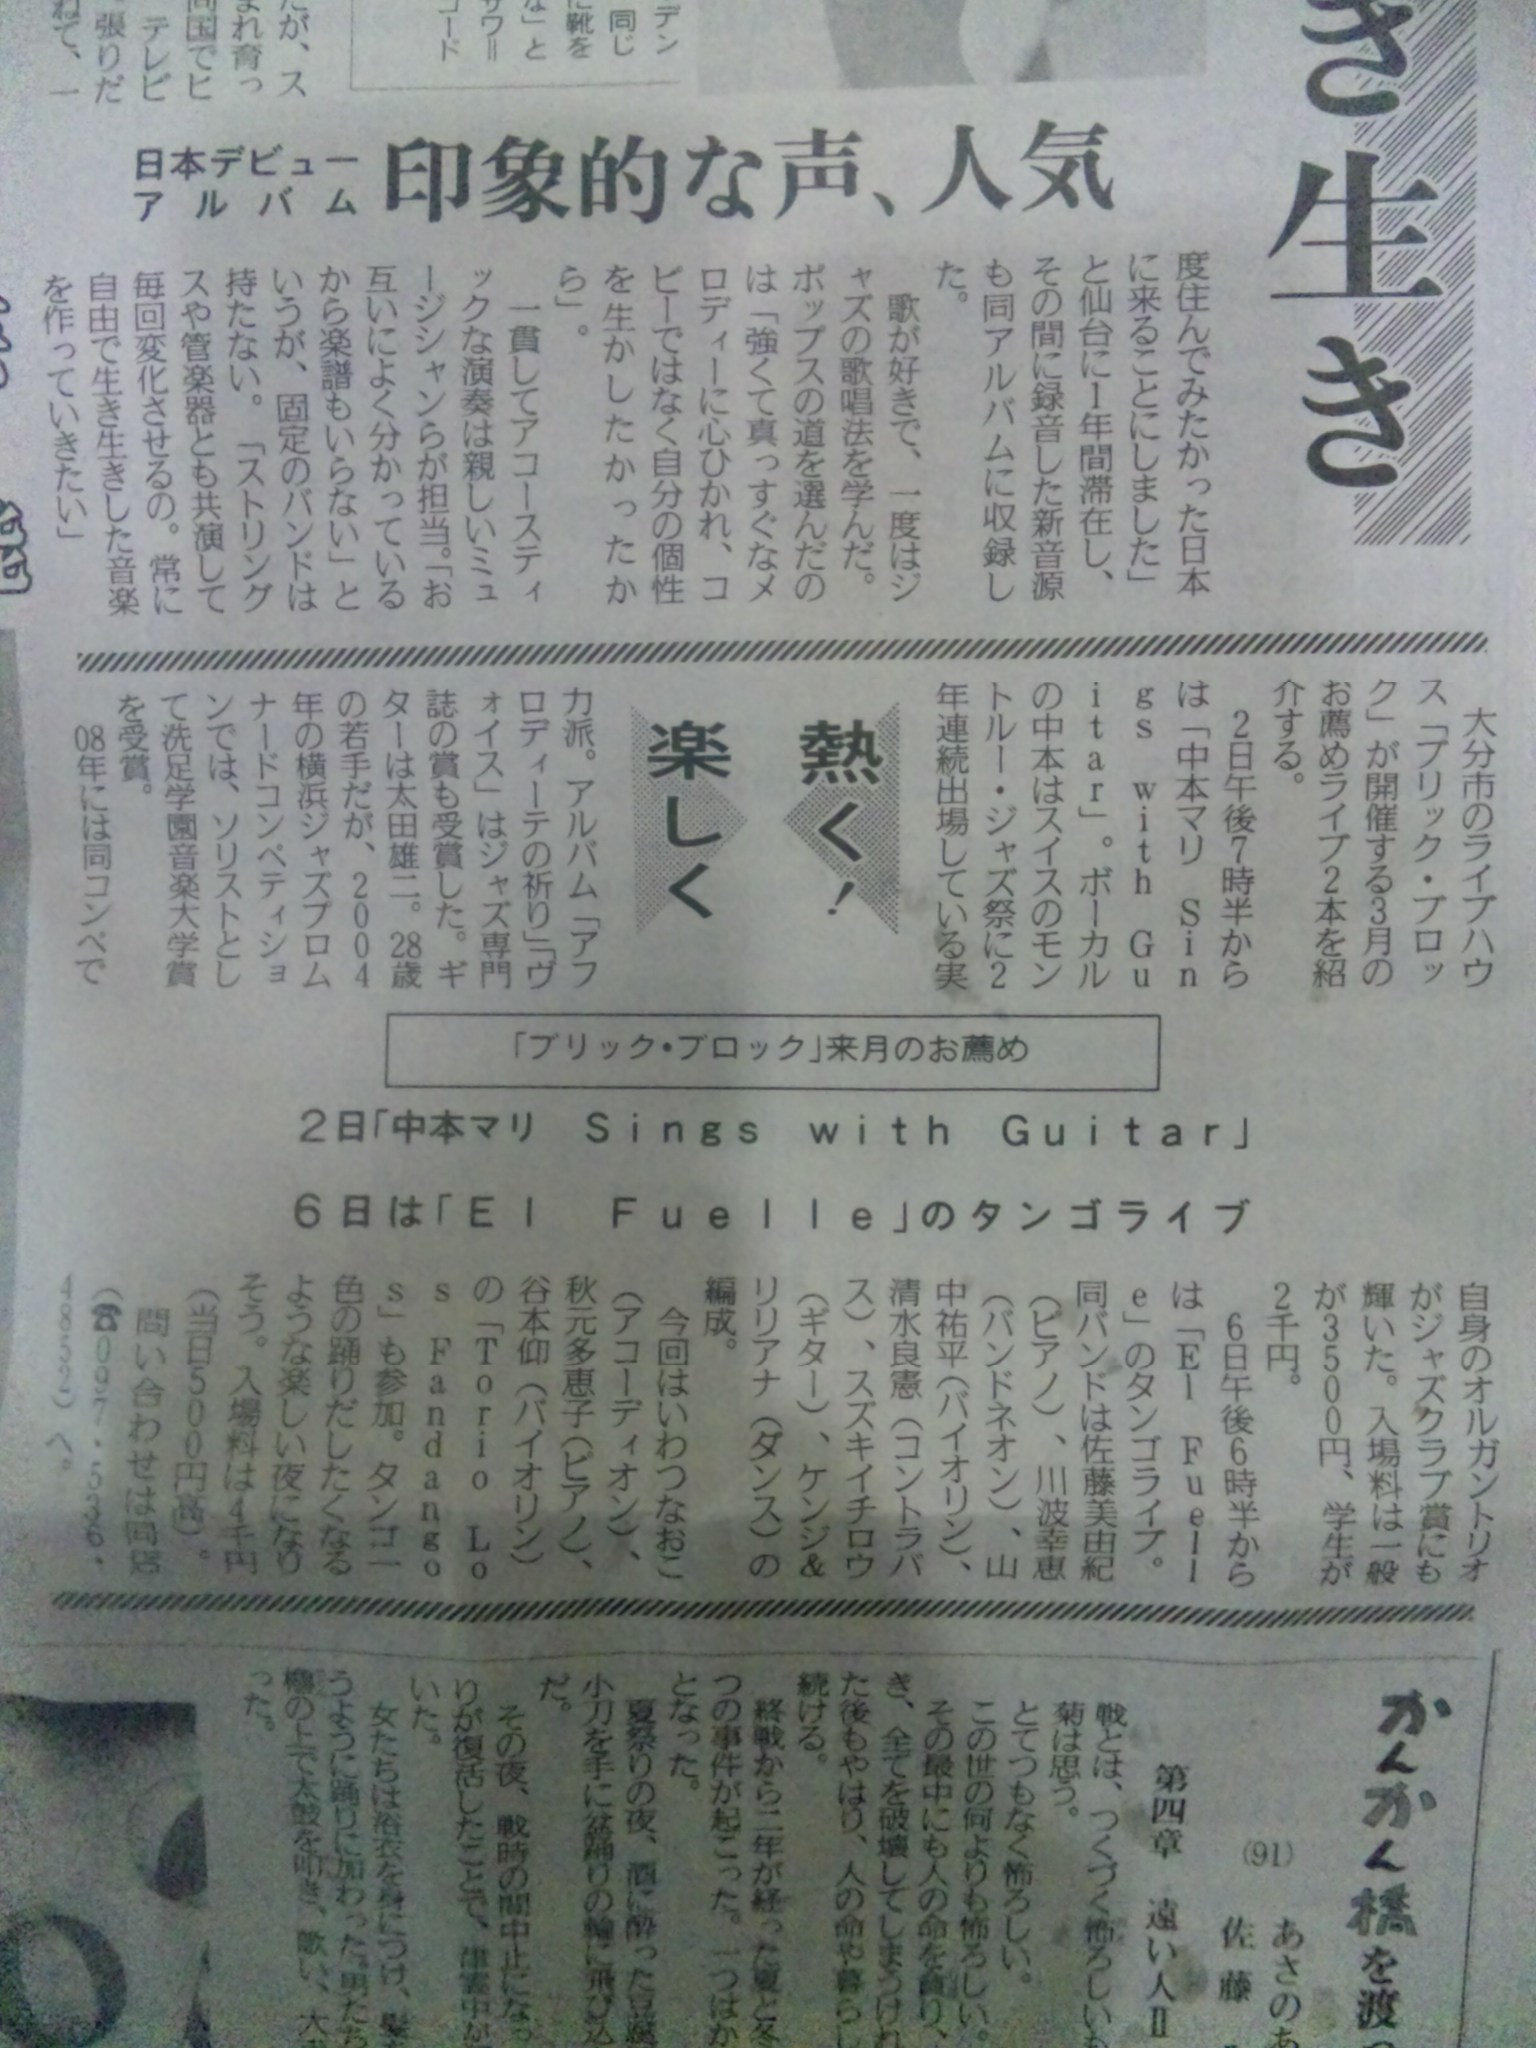 き生き
印象的な声、人気
日本デビュー
アルバム
度住んでみたかった日本
に来ることにしました」
と仙台に1年間滞在し、
その間に録音した新音源
も同アルバムに収録し
た。
歌が好きで、一度はジ
ャズの歌唱法を学んだ。
ポップスの道を選んだの
は「強くて真っすぐなメ
ロディーに心ひかれ、コ
ピーではなく自分の個性
を生かしたかったか
ら」。
一貫してアコースティ
ックな演奏は親しいミュ
ージシャンらが担当。「お
互いによく分かっている
から楽譜もいらない」と
いうが、固定のバンドは
持たない。「ストリング
スや管楽器とも共演して
毎回変化させるの。常に
自由で生き生きした音楽
を作っていきたい」
大分市のライブハウ
ス「ブリック・ブロッ
ク」が開催する3月の
お薦めライブ2本を紹
介する。
2日午後7時半から
は「中本マリ Sin
gs with Gu
itar」。ボーカル
の中本はスイスのモン
トルー・ジャズ祭に2
年連続出場している実
熱く!
楽しく
力派。アルバム「アフ
ロディーテの祈り」「ヴ
ォイス」はジャズ専門
誌の賞も受賞した。ギ
ターは太田雄二。28歳
の若手だが、2004
年の横浜ジャズプロム
ナードコンペティショ
ンでは、ソリストとし
て洗足学園音楽大学賞
を受賞。
08年には同コンペで
「ブリック・ブロック」来月のお薦め
2日「中本マリ Sings with Guitar」
6日は「El Fuelle」のタンゴライブ
自身のオルガントリオ
がジャズクラブ賞にも
輝いた。入場料は一般
が3500円、学生が
2千円。
6日午後6時半から
は「El Fuell
e」のタンゴライブ。
同バンドは佐藤美由紀
(ピアノ)、川波幸恵
(バンドネオン)、山
中祐平(バイオリン)、
清水良憲(コントラバ
ス)、スズキイチロウ
(ギター)、ケンジ&
リリアナ(ダンス)の
編成。
今回はいわつなおこ
(アコーディオン)、
秋元多恵子(ピアノ)、
谷本仰(バイオリン)
の「Torio Lo
s Fandango
s」も参加。タンゴ一
色の踊りだしたくなる
ような楽しい夜になり
そう。入場料は4千円
(当日500円高)。
問い合わせは同店
(☎097・536・
4852)へ。
かんかん橋を渡っ
(91)
あさのあ
佐藤
第四章 遠い人Ⅱ
戦とは、つくづく怖ろしいも
菊は思う。
とてつもなく怖ろしい。
この世の何よりも怖ろしい。
その最中にも人の命を貪り、
き、全てを破壊してしまうけれ
た後もやはり、人の命や暮らし
続ける。
終戦から二年が経った夏と冬
つの事件が起こった。一つはか
となった。
夏祭りの夜、酒に酔った
小刀を手に盆踊りの輪に飛び込
だ。
その夜、戦時の間中止になっ
りが復活したことで、
いた。
女たちは浴衣を身につけ、髪
うように踊りに加わった。男たち
櫓の上で太鼓を叩き、歌い、大
った。